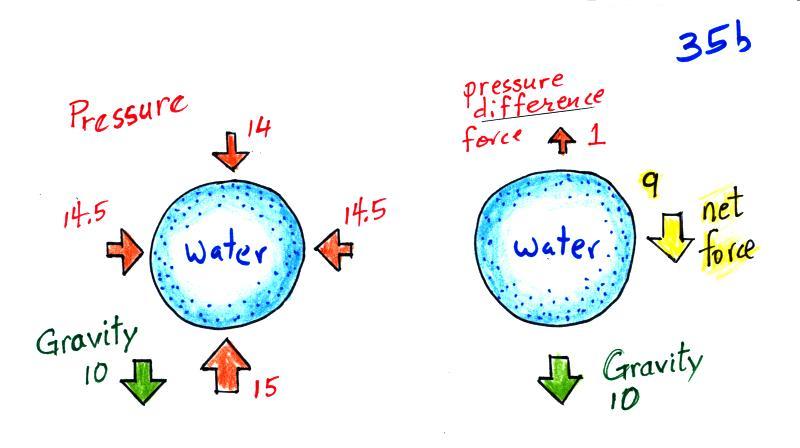 35b
Pressure
14
14.5
14.5
water
Gravity
10
15
pressure
difference
force
1
9
net
force
water
Gravity
10